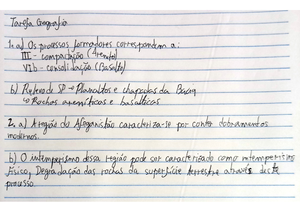 Tarefa Geografia
1. a) Os processos formadores correspondem a:
III - compactação (Arenito)
VIb - consolidação (Basalto)
b) Relevo de SP → Planaltos e chapadas da Bacia
↳ Rochas areníticas e basálticas
2. a) A região do Afeganistão caracteriza-se por conter dobramentos
modernos.
b) O intemperismo dessa região pode ser caracterizado como intemperismo
físico, Degradação das rochas da superfície terrestre através deste
processo